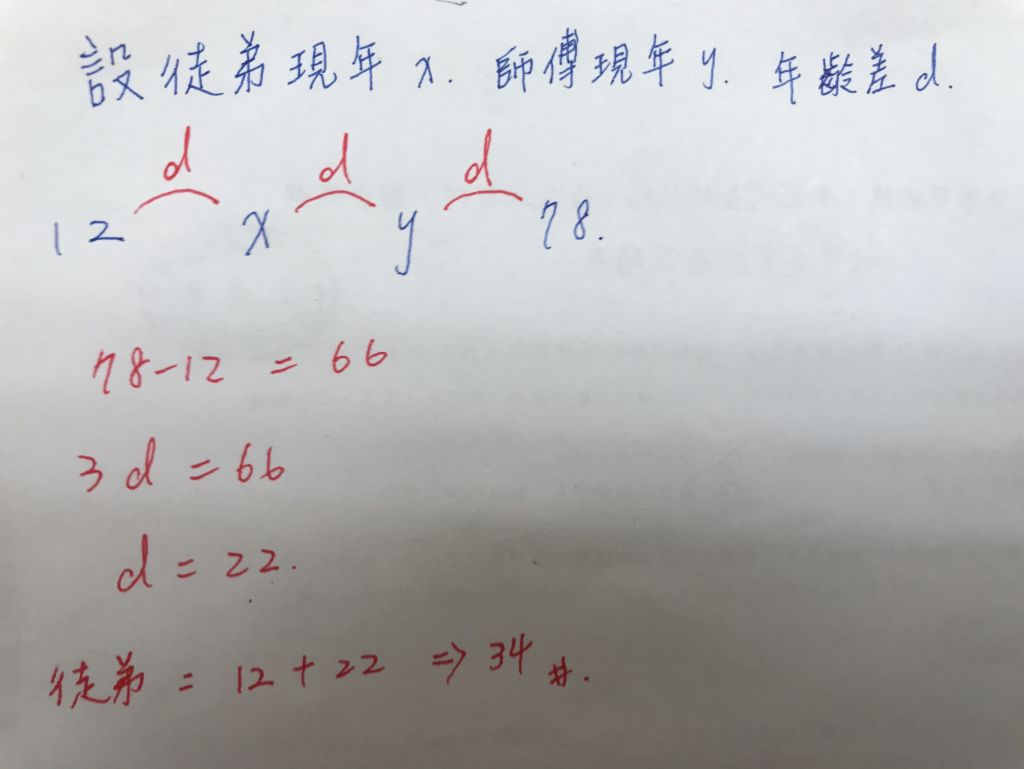 設徒弟現年 x. 師傅現年 y. 年齡差 d.
d d d
12 x y 78.
78-12 = 66
3d = 66
d = 22.
徒弟 = 12 + 22 => 34 #.